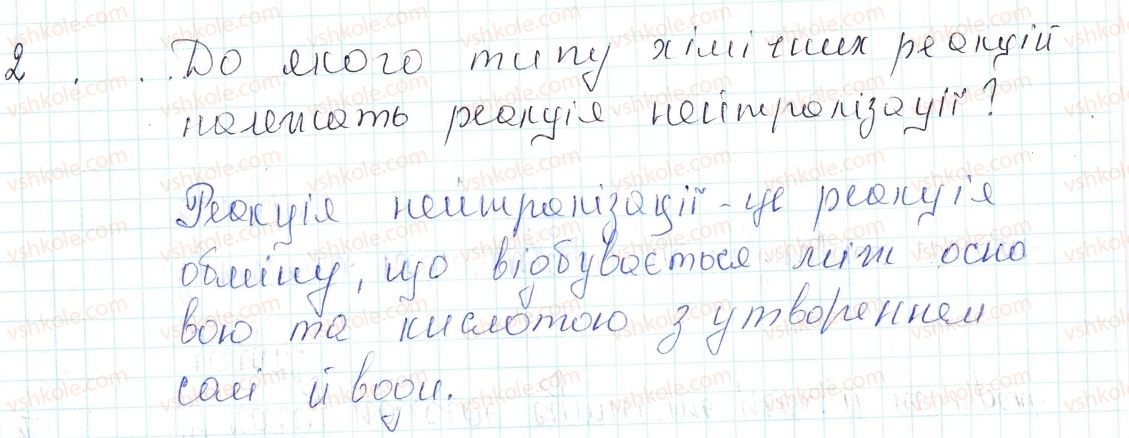 2 . . . До якого типу хімічних реакцій
належать реакція нейтралізації?
Реакція нейтралізації - це реакція
обміну, що відбувається між осно
вою та кислотою з утворенням
солі й води.